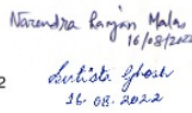 Narendra Ranjan Mala
16/08/2022
Ghosh
16.08.2022
2